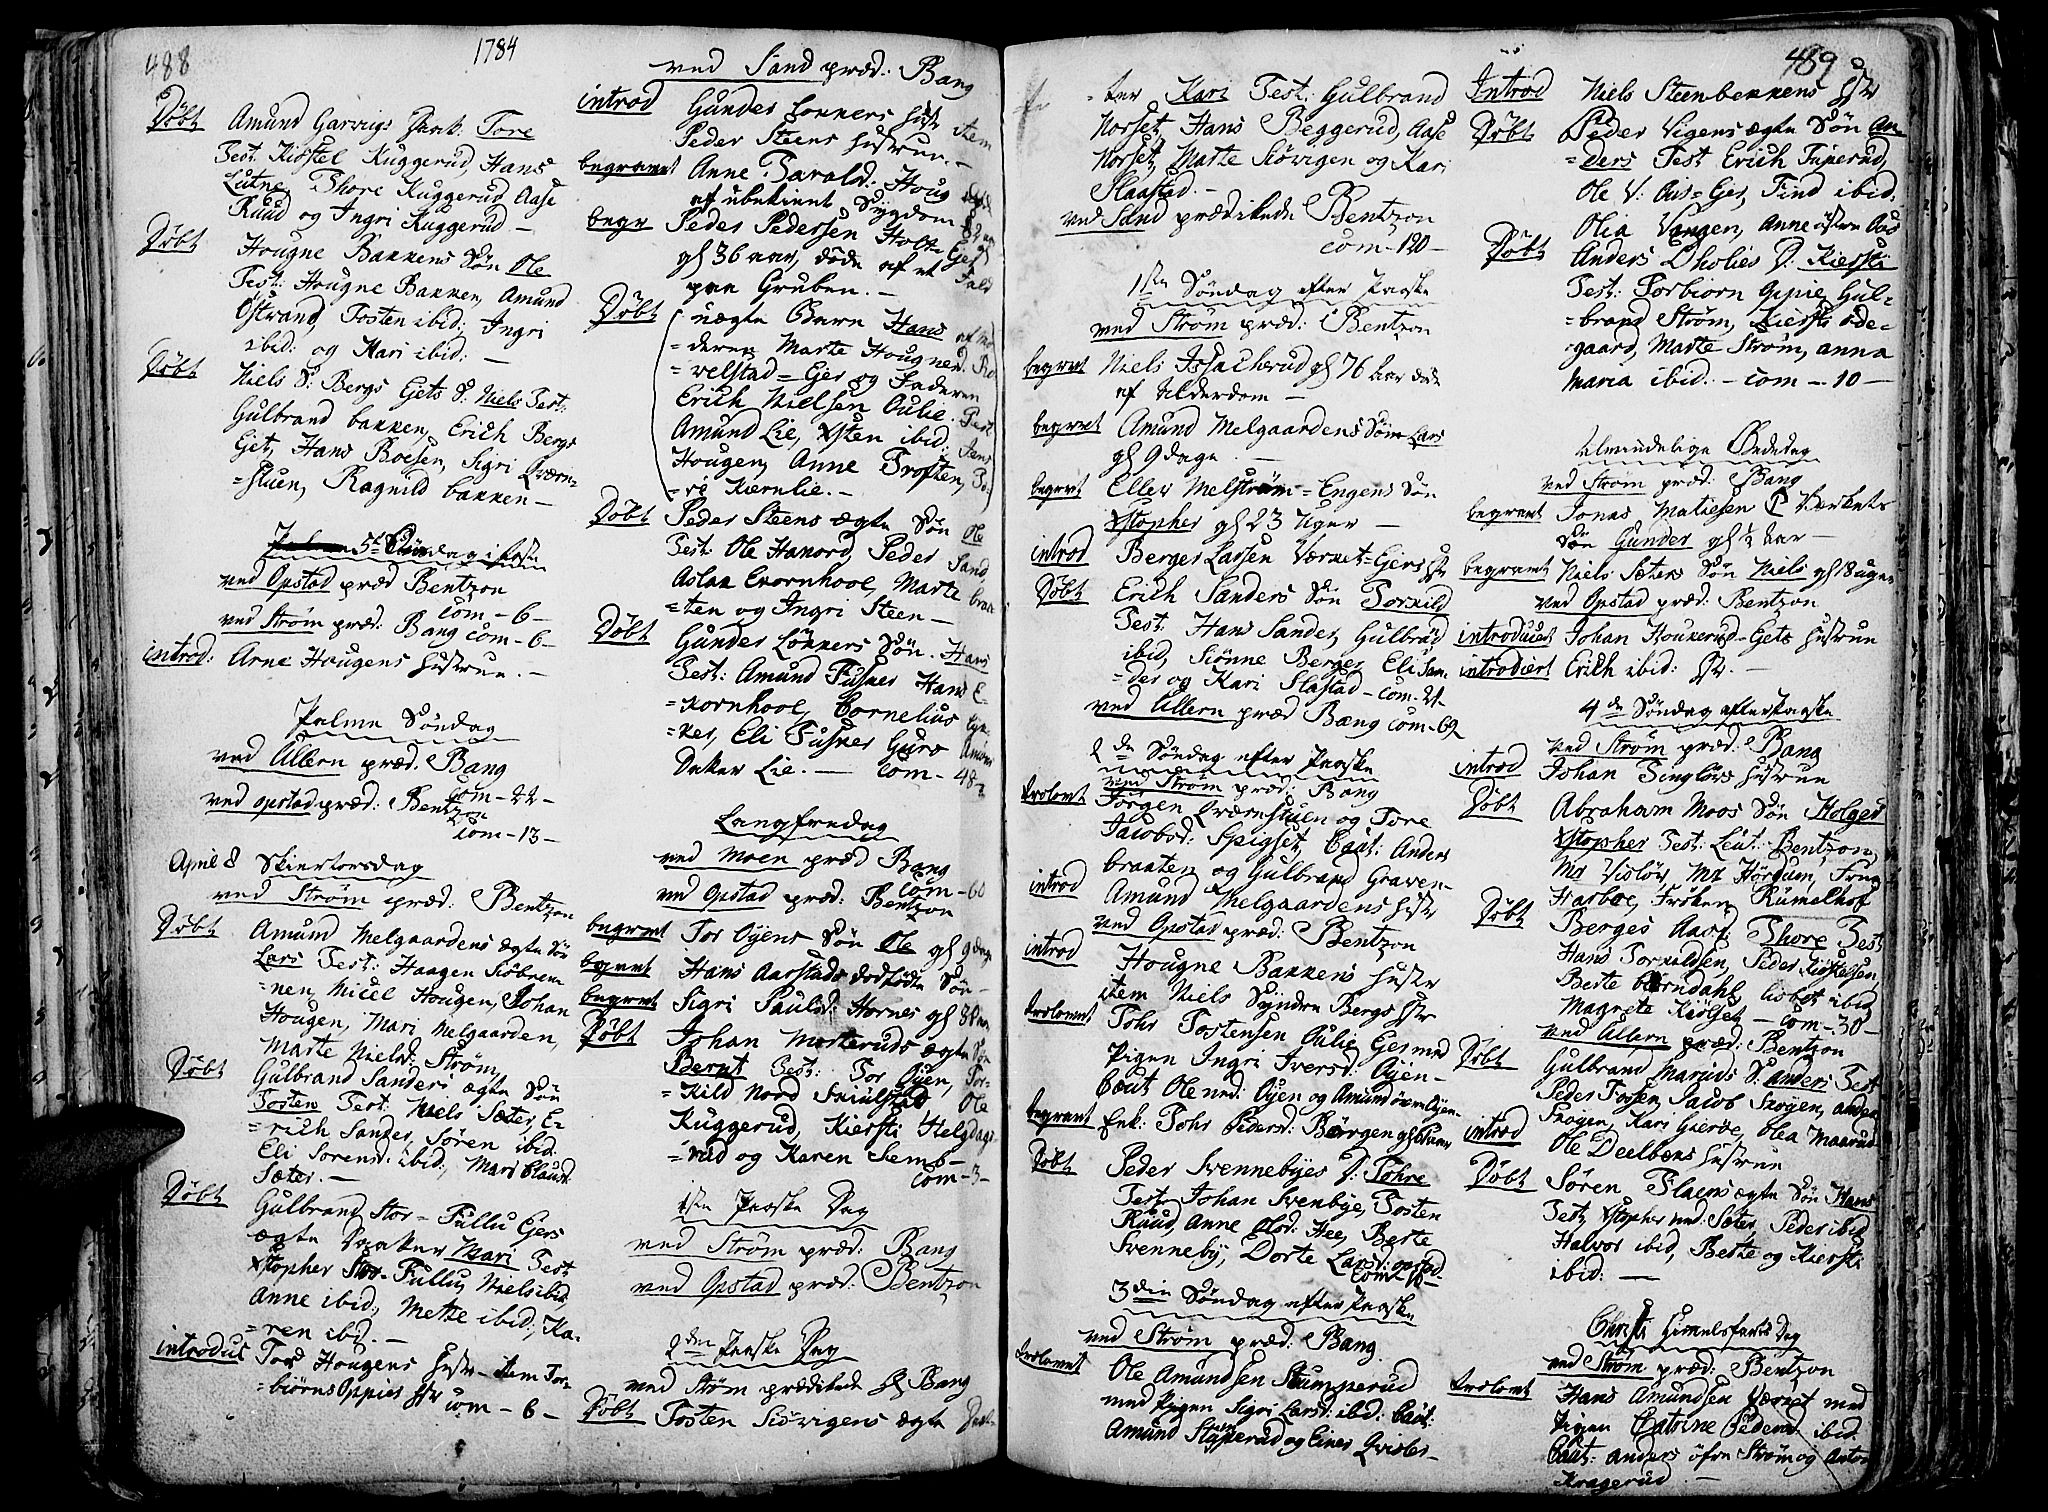 488
1784
Döbt Amund Garvigs Tore
Test. Kiøstel Kuggerud, Hans
Lutne, Thore Kuggerud, Aase
Ruud og Ingri Kuggerud –
Döbt Hougne Bakkens Søn Ole
Test: Hougne Bakken, Amund
Ostrand, Tosten ibid: Ingri
ibid: og Kari ibid: –
Döbt Niels S: Bergs Gets S: Niels Test:
Gulbrand bakken, Erich Bergs
Get, Hans Boesen, Sigri Qværn-
=stuen, Ragnild bakken –
5te Söndag i faste
ved Opstad præd Bentzon
com – 6 –
ved Strøm præd: Bang com – 6 –
introd: Arne Hougens hustrue. –
Palme Söndag
ved Ullern præd. Bang
com – 22 –
ved opstad præd: Bentzon
com – 13 –
April 8 Skiertorsdag
ved Strøm præd: Bentzon
Döbt Amund Melgaardens ægte Søn
Lars Test: Haagen Siöbnem
nen, Micel Hougen, Johan
Hougen, Mari Melgaarden,
Marte Nielsd: Strøm,
Döbt Gulbrand Sanders ægte Søn
Tosten Test: Niels Sæter, E-
=rich Sander, Sören ibid.
Eli Sorensd: ibid, Mari Clausd
Sæter. –
Döbt Gulbrand Stor = Fullu Gers
ægte Daater Mari Test
Xstopher Stor-Fullu, Niels ibid,
Anne ibid, Mette ibid, Ka-
=ren ibd. –
introdus Tord Hougens Hustr – item Tor-
=biörns Oppies Hstr com – 6 –
ved Sand præd: Bang
introd Gunder Lonners Hustr item
Peder Steens hustrue. –
begravet Anne Taralsd: Houg
af ubekient Sygdom
begr Peder Pedersen Holt= Ger
gl 36 aar, döde af et Fald
paa Gruben. –
Döbt uægte Barn Hans af Mo
=deren Marte Hougned:
=velstad = Ger og Faderen
Erich Nielsen Oulie. Test
Amund Lie, Xsten ibid: Jens
Hougen, Anne Trosten,
=re Kiernlie. –
Döbt Peder Steens ægte Søn Ole
Test: Ole Hanord, Peder Sand,
Aslak Ekornhool, Marte braa
=ten og Ingri Steen –
Döbt Gunder Lönners Søn. Hans
Test: Amund Fusker Hans E-
=kornhool, Cornelius
=ker, Eli Fusker Guro Amun
Daker Lie. – com – 48 –
Langfredag
ved Moen præd Bang
com – 60
ved Opstad præd: Bentzon
begravet Tor Oyens Søn Ole gl 9 dage
begravet Hans Aarstads dodfödte Søn –
begravet Sigri Paulsd: Hornes gl
Döbt Johan Mosteruds ægte Søn
Bernt Test: Tor Oyen, Tor-
=kild Nord Skiulstad Ole
Kuggerud, Kiersti Helgdags
=rud og Karen Semb –
com – 3 –
1ste Paaske Dag
ved Strøm præd: Bang
ved Opstad præd: Bentzon
2den Paaske Dag
ved Strøm prædikede H Bang
Döbt Tosten Siövigens ægte Daat-
489
=ter Kari Test: Gulbrand
Norset, Hans Beggerud, Aase
Norset, Marte Siövigen og Kari
Slaastad. –
ved Sand prædikede Bentzon
com – 120 –
1ste Söndag efter Paaske
ved Strøm præd: Bentzon
begravet Niels Issacherud gl 76 Aar döde
af Alderdom –
begravet Amund Melgaardens Søn Lars
gl 9 dage. –
begravet Eller Melstrøm = Engens Søn
Xstopher gl 23 Uger –
introd Berger Larsen Værnet = Gers Hstr
Döbt Erich Sanders Søn Torkild
Test. Hans Sander, Gulbrād
ibid, Siönne Berger, Eli San-
=der og Kari Slastad – com – 24 –
ved Ullern præd Bang com – 62
2de Söndag efter Paaske
ved Strøm præd: Bang
trolovet Jörgen Qværnstuen og Tore
Jacobsd: Spigset, Caut: Anders
braaten og Gulbrand Graven –
introd Amund Melgaardens Hustr
ved Opstad præd: Bentzon
introd Hougne Bakkens hustr
item Niels Syndre Bergs Hstr
trolovet Tohr Tostensen Oulie Ger med
Pigen Ingri Iversd: Oyen –
Caut Ole ned: Oyen og Amund övre Oyen
begravet Enk: Tohr Pedersd: Börgen gl
Döbt Peder Svennebyes D: Tohre
Test. Johan Svenbye, Tosten
Ruud, Anne Olsd: Hee, Berte
Svenneby, Dorte Larsd: opstad.
3die Söndag efter Paaske
ved Strøm præd: Bang
trolovet Ole Amundsen Stumperud
med Pigen Sigri Larsd: ibid: Caut:
Amund Stumperud og Einer Qvisler –
Introd Niels Steenbekkens Hstr
Döbt Peder Vigens ægte Søn An-
=ders Test Erich Tuperud,
Ole V: Aus = Ger, Find ibid.
Olia Vangen, Anne östre Aas
Döbt Anders Dholies D: Kiersti
Test: Torbiorn Oppie, Gul-
=brand Strøm, Kiersti öde-
gaard, Marte Strøm, anna
Maria ibid. – com – 10 –
Almindelige Bededag
ved Strøm præd: Bang
begravet Jonas Matiesen Verkets
Søn Gunder gl ½ Aar –
begravet Niels Sæters Søn Niels gl 18 uger
ved Opstad præd: Bentzon
introduceret Johan Houkerud-Gets Hustrue
introducert Erich ibid: Hstr. –
4de Söndag efter Paaske
ved Strøm præd: Bang
introd Johan Tinglørs hustrue
Döbt Abraham Moos Søn Holged
Xstopher Test: Leut: Bentzon,
Mr Violöv, Mr Hördum, Frue
Harboe, Fröken Rumelhof
Döbt Berges Aas S: Thore Test
Hans Torkildsen, Peder Kiöstelsen,
Berte biörndahl, Lisbet ibid
Magrete Kiölset – com – 30 –
ved Ullern præd: Bentzon
Döbt Gulbrand Maruds S: Anders Test
Peder Fossen, Jacob Skogen, anders
Skogen, Kari Gierde, Olea Maarud
introd Ole Deelbens hustrue
Döbt Sören Flaens ægte Søn Hans
Test, Xstopher ned: Sæter, Peder ibid,
Halvor ibid, Berte og Kiersti
ibid: –
Christi Himelsfarts Dag
ved Strøm præd: Bentzon
trolovet Hans Amundsen Værnet med
Pigen Catrine Pedersd ibid.
Caut: Anders öfre Strøm og Anton
Kragerud –